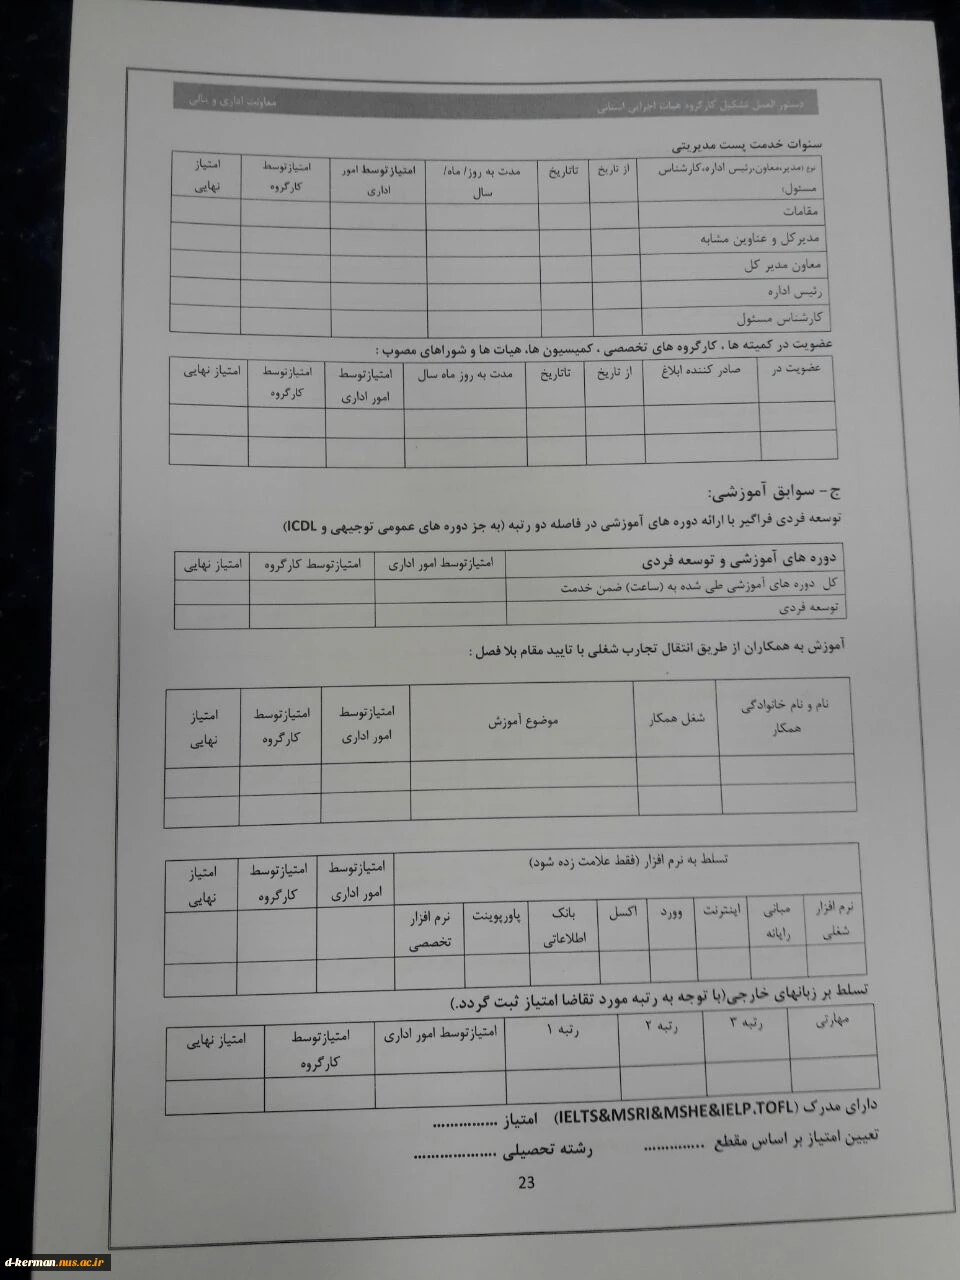 دستور العمل تشکیل کارگروه هیات اجرایی استانی معاونت اداری و مالی
سنوات خدمت پست مدیریتی
نوع (مدیر،معاون،رئیس اداره،کارشناس مسئول) از تاریخ تاتاریخ مدت به روز/ ماه/ سال امتیازتوسط امور اداری امتیازتوسط کارگروه امتیاز نهایی
مقامات
مدیرکل و عناوین مشابه
معاون مدیر کل
رئیس اداره
کارشناس مسئول
عضویت در کمیته ها ، کارگروه های تخصصی ، کمیسیون ها، هیات ها و شوراهای مصوب :
عضویت در صادر کننده ابلاغ از تاریخ تاتاریخ مدت به روز ماه سال امتیازتوسط امور اداری امتیازتوسط کارگروه امتیاز نهایی
ج- سوابق آموزشی:
توسعه فردی فراگیر با ارائه دوره های آموزشی در فاصله دو رتبه (به جز دوره های عمومی توجیهی و ICDL)
دوره های آموزشی و توسعه فردی امتیازتوسط امور اداری امتیازتوسط کارگروه امتیاز نهایی
کل دوره های آموزشی طی شده به (ساعت) ضمن خدمت
توسعه فردی
آموزش به همکاران از طریق انتقال تجارب شغلی با تایید مقام بلا فصل :
نام و نام خانوادگی همکار شغل همکار موضوع آموزش امتیازتوسط امور اداری امتیازتوسط کارگروه امتیاز نهایی
تسلط به نرم افزار (فقط علامت زده شود) امتیازتوسط امور اداری امتیازتوسط کارگروه امتیاز نهایی
نرم افزار شغلی مبانی رایانه اینترنت وورد اکسل بانک اطلاعاتی پاورپوینت نرم افزار تخصصی
تسلط بر زبانهای خارجی(با توجه به رتبه مورد تقاضا امتیاز ثبت گردد.)
مهارتی رتبه ۳ رتبه ۲ رتبه ۱ امتیازتوسط امور اداری امتیازتوسط کارگروه امتیاز نهایی
دارای مدرک (IELTS&MSRI&MSHE&IELP.TOFL) امتیاز ...............
تعیین امتیاز بر اساس مقطع .............. رشته تحصیلی ...................
23
d-kerman.nus.ac.ir